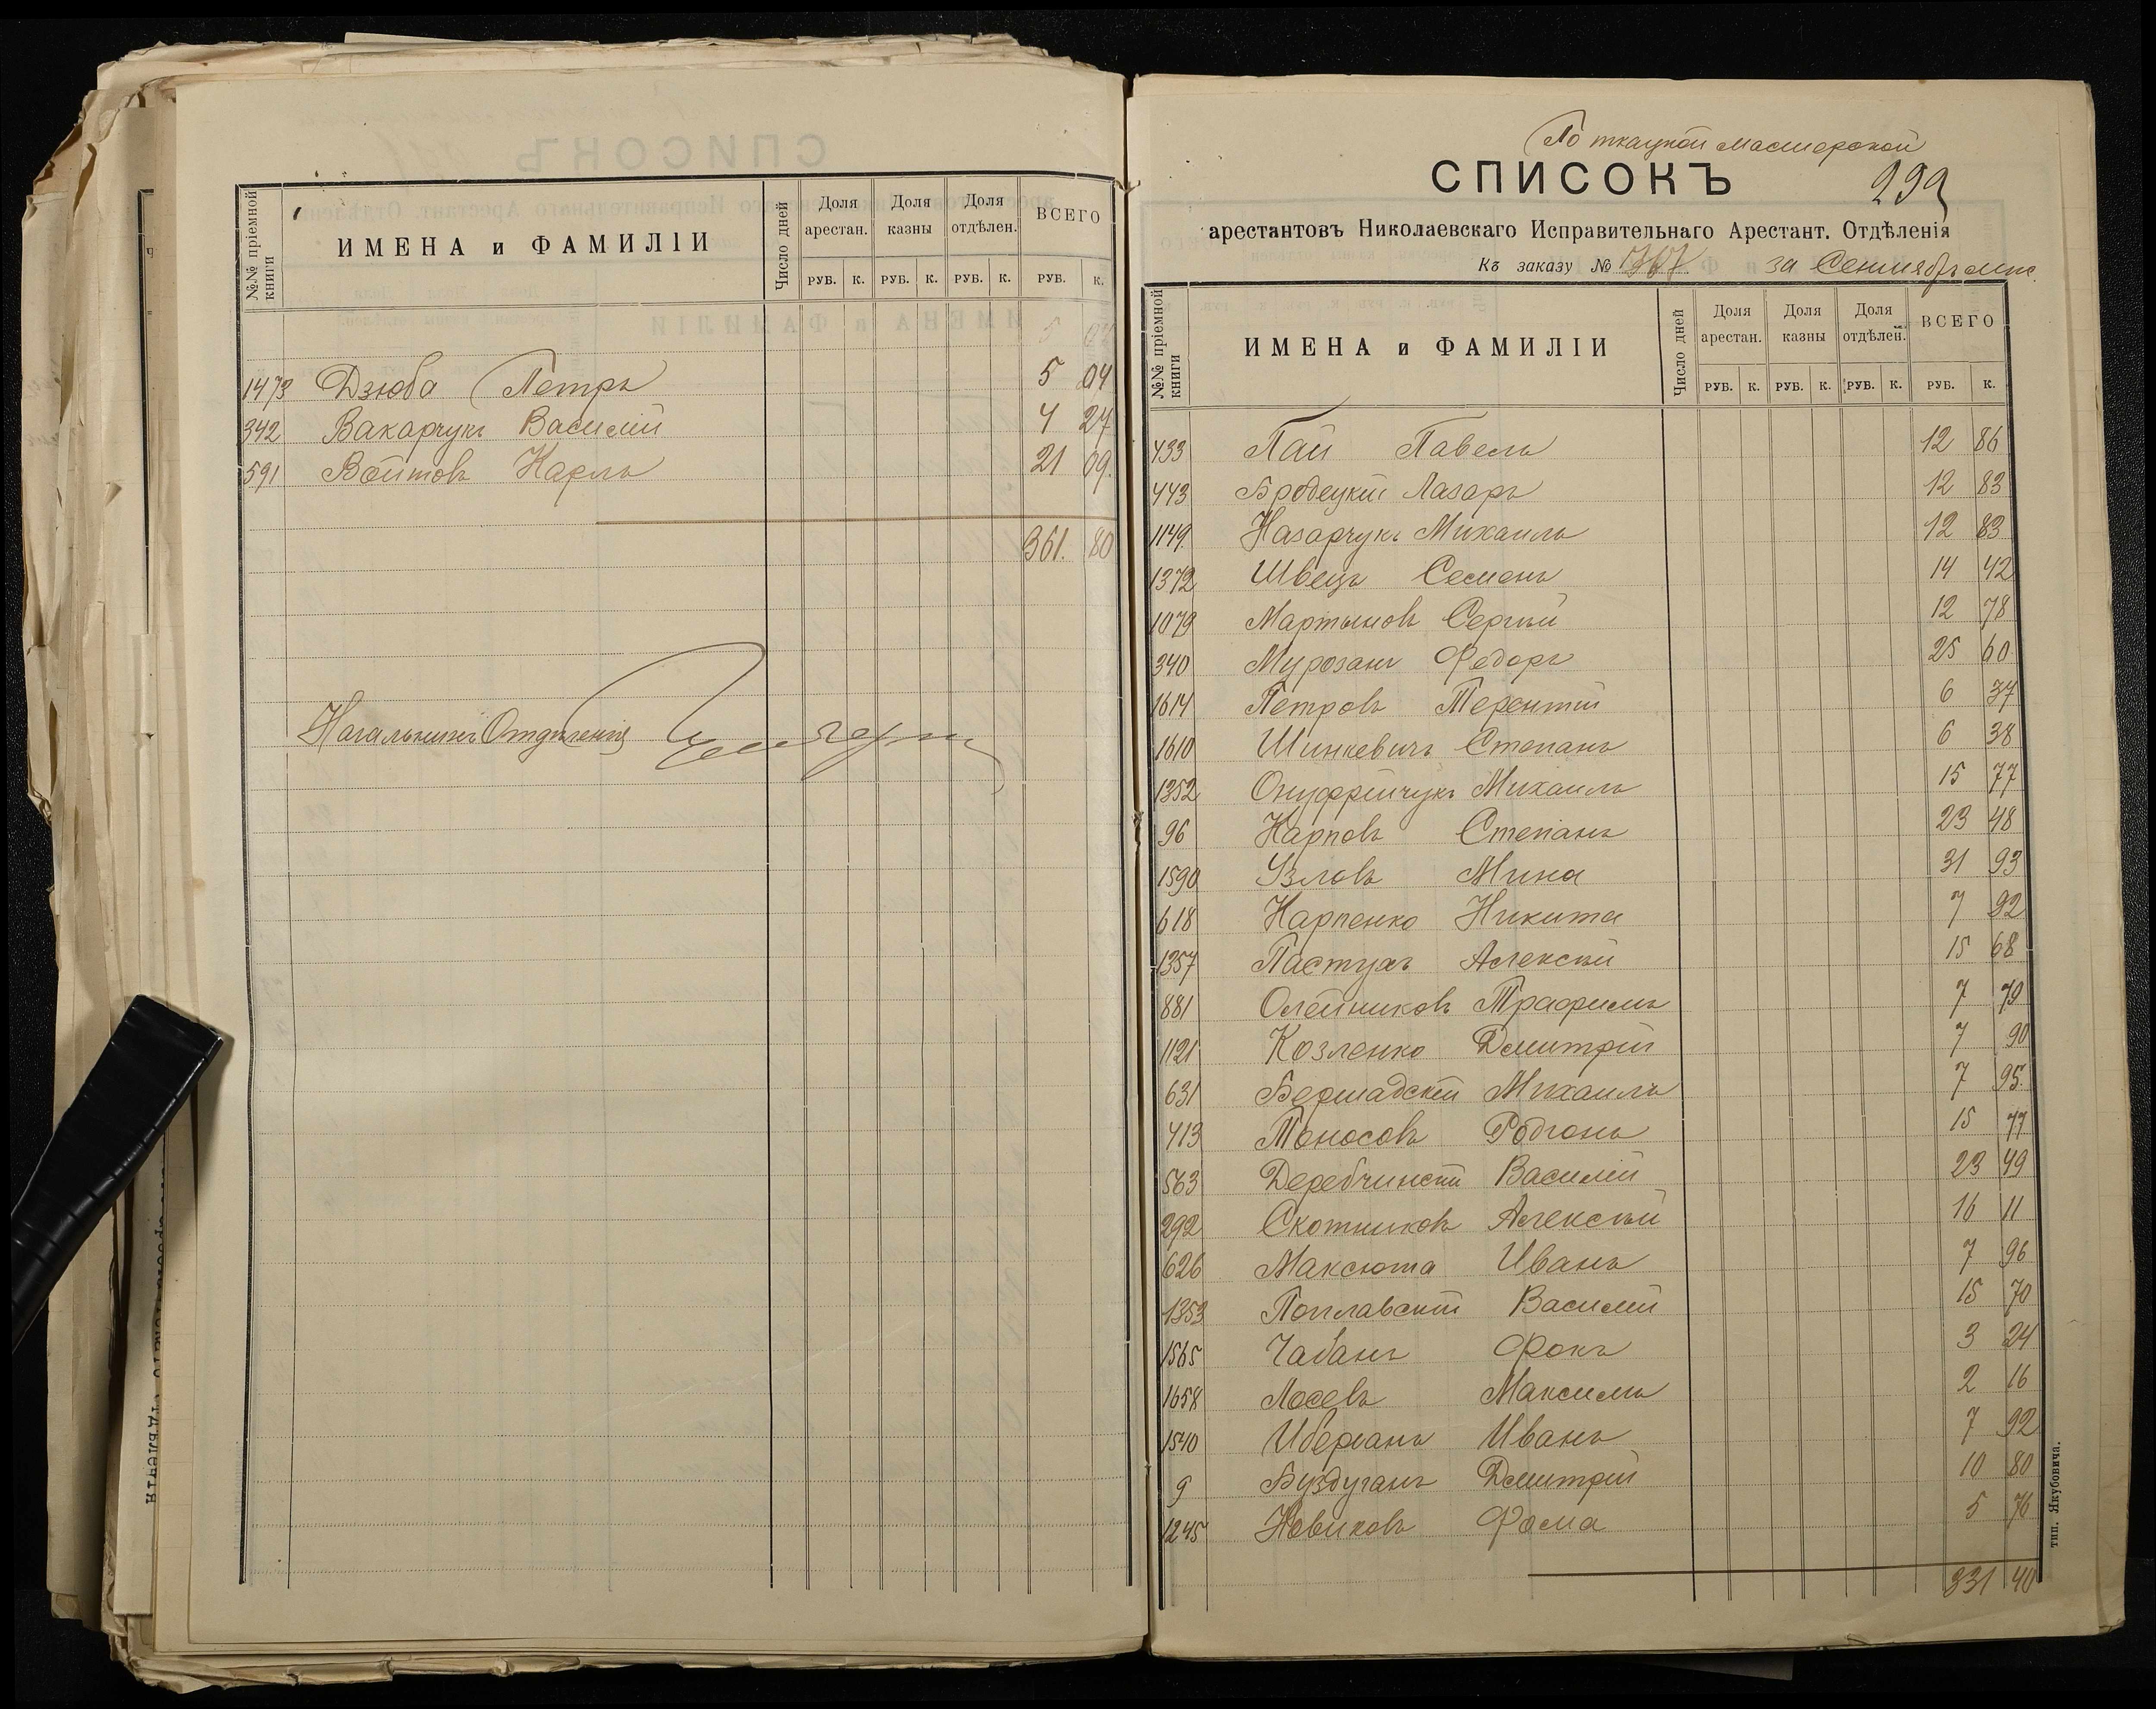 №№ пріемной книги
ИМЕНА и ФАМИЛІИ
Число дней
Доля арестан.
Доля казны
Доля отдѣлен.
ВСЕГО
РУБ. К. РУБ. К. РУБ. К. РУБ. К.
1473 Дзюба Петръ 5 04
342 Вакарчукъ Василій 4 27
591 Войтовъ Карлъ 21 09.
361. 80
Начальникъ Отдѣленія
По ткацкой мастерской
СПИСОКЪ
299
арестантовъ Николаевскаго Исправительнаго Арестант. Отдѣленія
Къ заказу № за Сентябрь мѣс.
№№ пріемной книги
ИМЕНА и ФАМИЛІИ
Число дней
Доля арестан.
Доля казны
Доля отдѣлен.
ВСЕГО
РУБ. К. РУБ. К. РУБ. К. РУБ. К.
433 Пай Павелъ 12 86
443 Бродецкій Лазарь 12 83
1149. Назарчукъ Михаилъ 12 83
1372 Швецъ Семенъ 14 42
1079 Мартыновъ Сергѣй 12 78
340 Мурозанъ Федоръ 25 60
1614 Петровъ Терентій 6 37
1610 Шинкевичъ Степанъ 6 38
1352 Онуфрійчукъ Михаилъ 15 77
96 Карповъ Степанъ 23 48
1590 Узловъ Мина 31 93
618 Карпенко Никита 7 92
1357 Пастухъ Алексѣй 15 68
881 Олейниковъ Трафимъ 7 79
1121 Козленко Дмитрій 7 90
631 Бершадскій Михаилъ 7 95
413 Поносовъ Родіонъ 15 77
563 Деребчинскій Василій 23 49
292 Скотниковъ Алексѣй 16 11
626 Максюта Иванъ 7 96
1353 Поплавскій Василій 15 70
1565 Чабанъ Фокъ 3 24
1658 Лосевъ Максимъ 2 16
1540 Иванъ 7 92
9 Буздуганъ Дмитрій 10 80
1245 Новиковъ Фома 5 76
331 40
тип. Якубовича.